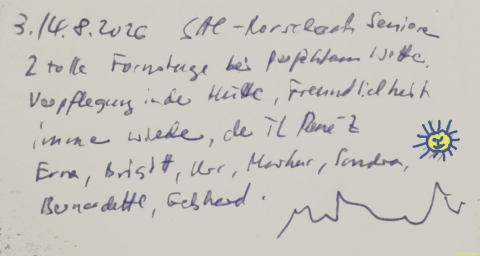 3./4.8.2026 SAC-Rorschach Senioren
2 tolle Formstage bei perfektem Wetter,
Verpflegung in der Hütte, Freundlichkeit
immer wieder, de TL René Z
Erna, Brigitt, Urs, Markus, Sandra,
Bernadette, Gebhard.